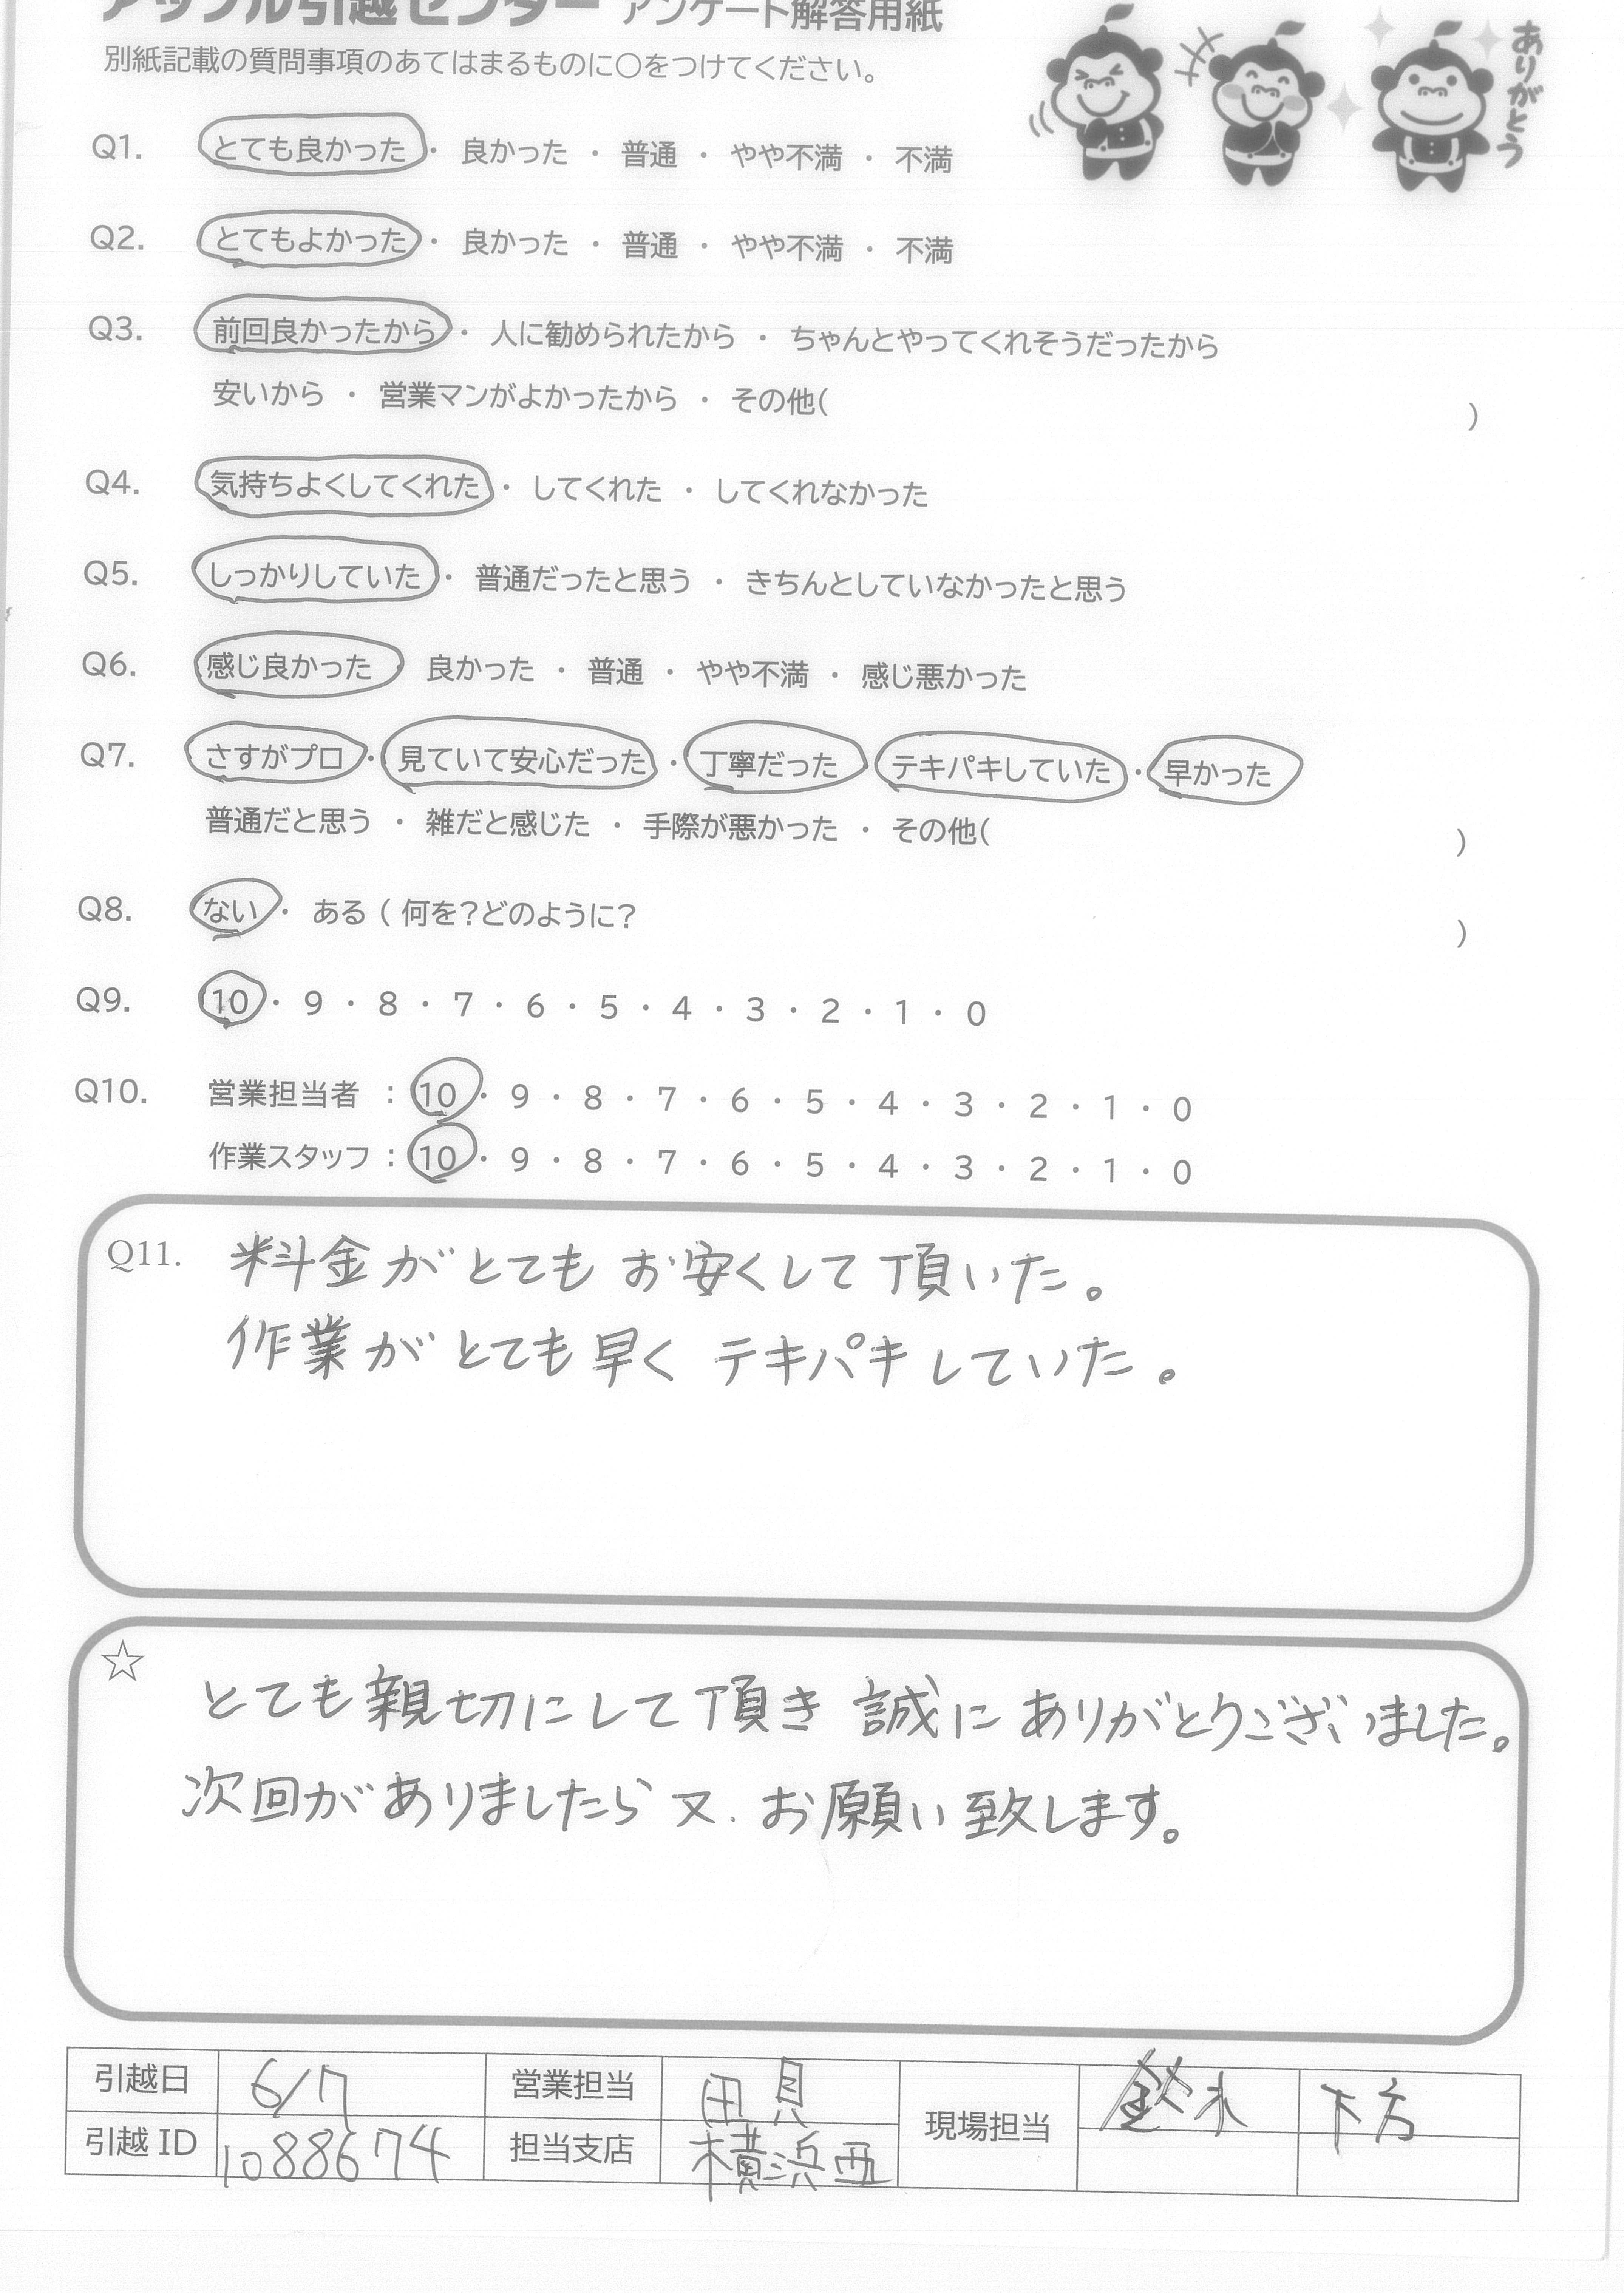 アップル引越センター アンケート解答用紙
別紙記載の質問事項のあてはまるものに〇をつけてください。
ありがとう
Q1. とても良かった ・ 良かった ・ 普通 ・ やや不満 ・ 不満
Q2. とてもよかった ・ 良かった ・ 普通 ・ やや不満 ・ 不満
Q3. 前回良かったから ・ 人に勧められたから ・ ちゃんとやってくれそうだったから
安いから ・ 営業マンがよかったから ・ その他( )
Q4. 気持ちよくしてくれた ・ してくれた ・ してくれなかった
Q5. しっかりしていた ・ 普通だったと思う ・ きちんとしていなかったと思う
Q6. 感じ良かった 良かった ・ 普通 ・ やや不満 ・ 感じ悪かった
Q7. さすがプロ ・ 見ていて安心だった ・ 丁寧だった テキパキしていた ・ 早かった
普通だと思う ・ 雑だと感じた ・ 手際が悪かった ・ その他( )
Q8. ない ・ ある ( 何を?どのように? )
Q9. 10 ・ 9 ・ 8 ・ 7 ・ 6 ・ 5 ・ 4 ・ 3 ・ 2 ・ 1 ・ 0
Q10. 営業担当者 : 10 ・ 9 ・ 8 ・ 7 ・ 6 ・ 5 ・ 4 ・ 3 ・ 2 ・ 1 ・ 0
作業スタッフ : 10 ・ 9 ・ 8 ・ 7 ・ 6 ・ 5 ・ 4 ・ 3 ・ 2 ・ 1 ・ 0
Q11. 料金がとてもお安くして頂いた。
作業がとても早く テキパキしていた。
☆
とても親切にして頂き 誠にありがとうございました。
次回がありましたら又、お願い致します。
引越日 6/7 営業担当 田貝 現場担当 鈴木 下方
引越 ID 1088674 担当支店 横浜西